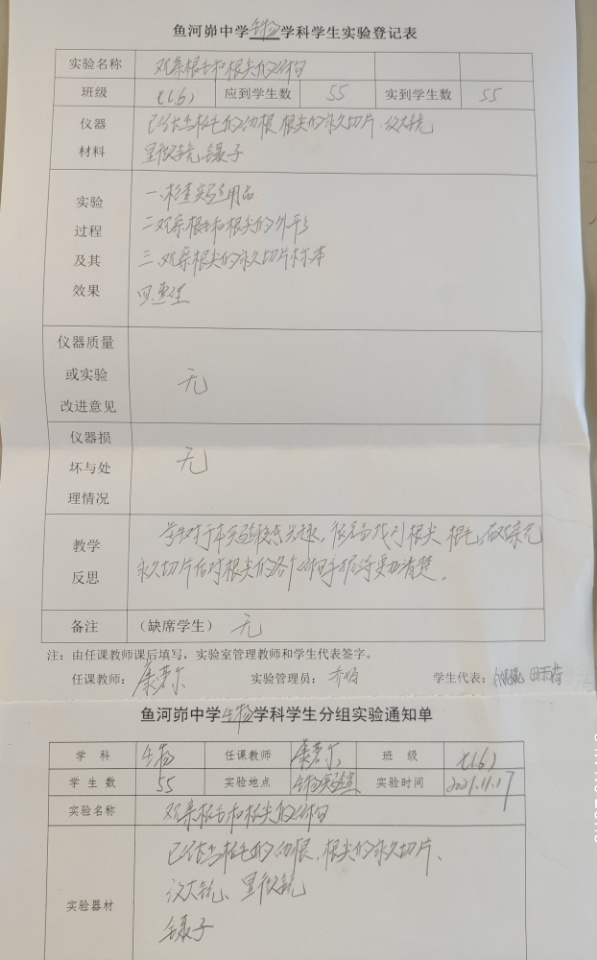 鱼河峁中学生物学科学生实验登记表
实验名称 观察根毛和根尖的结构
班级 七(6) 应到学生数 55 实到学生数 55
仪器材料 已经长出根毛的幼根、根尖的永久切片、放大镜
显微镜、镊子
实验过程及其效果 一、检查实验用品
二、观察根毛和根尖的外形
三、观察根尖的永久切片标本
四、
仪器质量或实验改进意见 无
仪器损坏与处理情况 无
教学反思 学生对于本实验很感兴趣,很容易找到根尖、根毛,
永久切片后对根尖的各个结构更加清楚。
备注 (缺席学生) 无
注:由任课教师课后填写,实验室管理教师和学生代表签字。
任课教师: 实验管理员: 学生代表:
鱼河峁中学生物学科学生分组实验通知单
学科 生物 任课教师 班级 七(6)
学生数 55 实验地点 生物实验室 实验时间 2021.11.17
实验名称 观察根毛和根尖的结构
实验器材 已经长出根毛的幼根、根尖的永久切片、
放大镜、显微镜
镊子